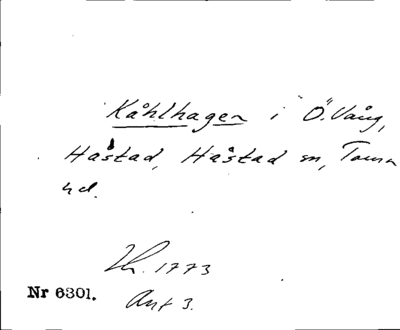 Kåhlhagen i Ö. Vång,
Håstad, Håstad sn, Torna
hd.
Lh. 1773
Nr 6301.
Akt 3.